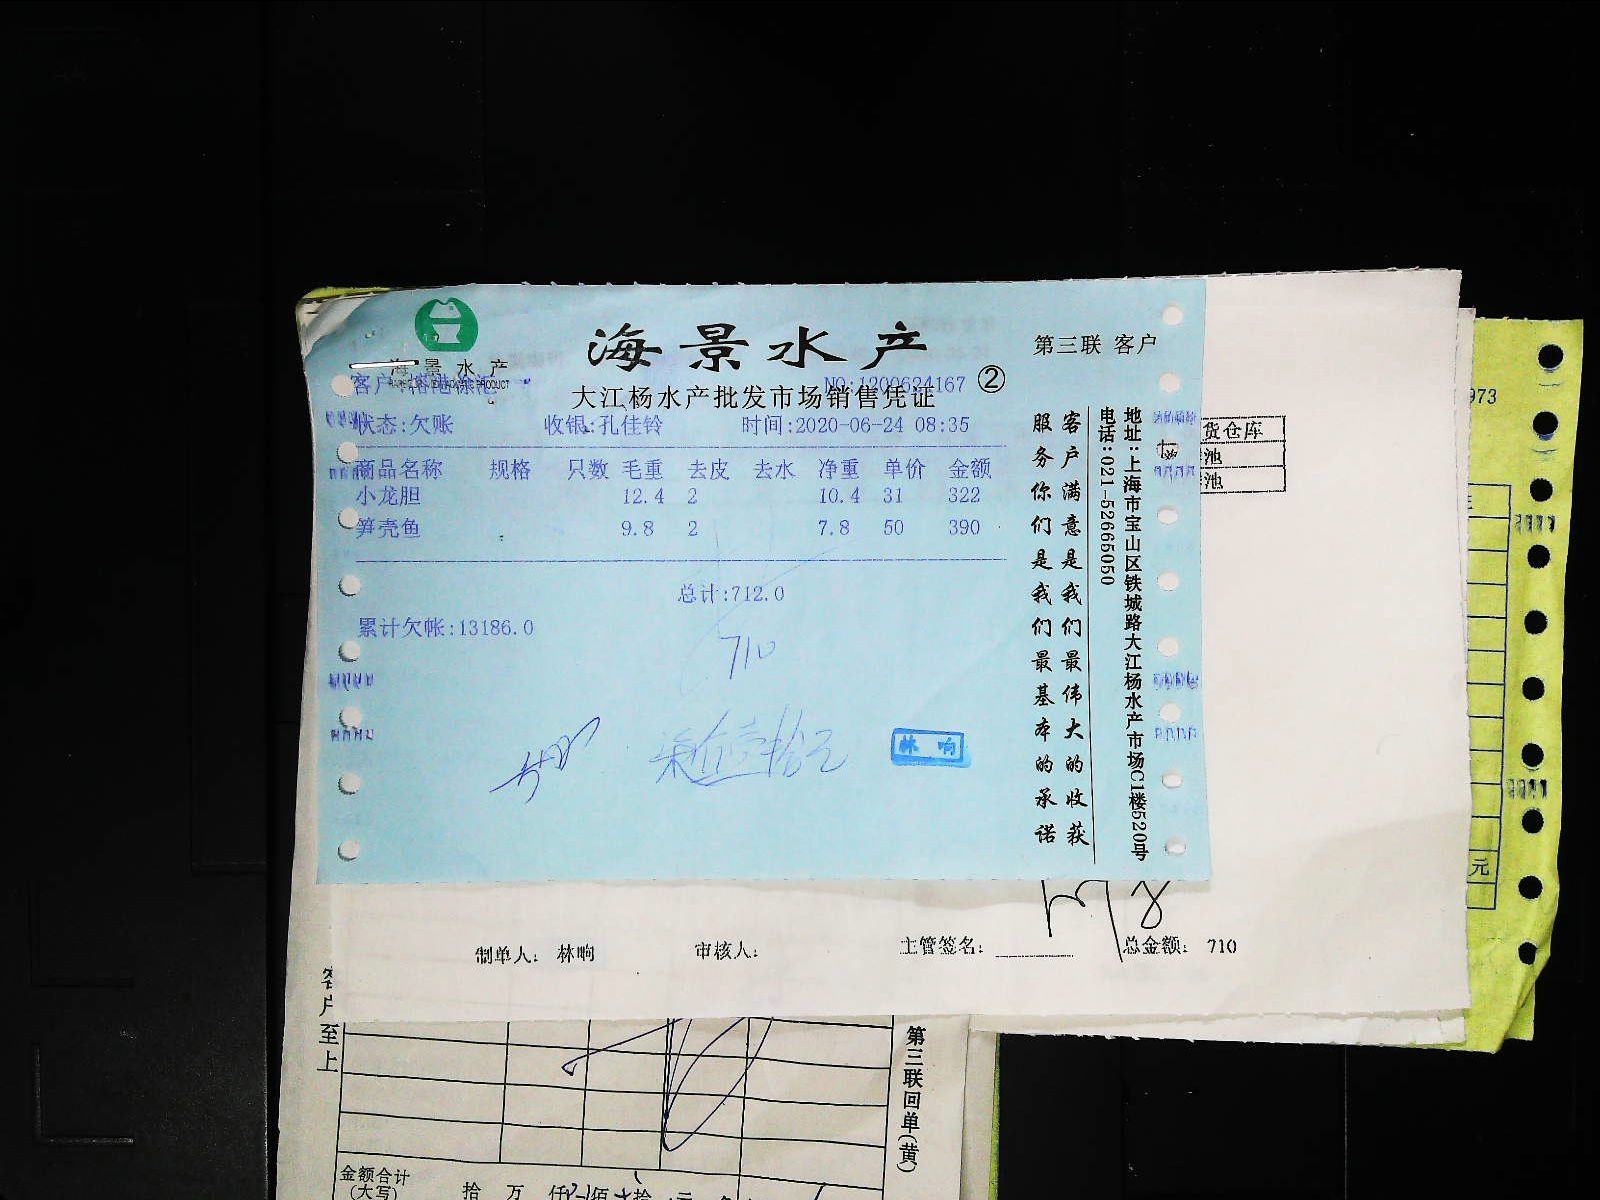 海景水产
海景水产
第三联 客户
NO:1200624167
②
大江杨水产批发市场销售凭证
状态:欠账 收银:孔佳铃 时间:2020-06-24 08:35
商品名称 规格 只数 毛重 去皮 去水 净重 单价 金额
小龙胆 12.4 2 10.4 31 322
笋壳鱼 9.8 2 7.8 50 390
总计:712.0
累计欠帐:13186.0
710
林响
客户满意是我们最伟大的收获
服务你们是我们最基本的承诺
地址:上海市宝山区铁城路大江杨水产市场C1楼520号
电话:021-52665050
货仓库
池
池
973
元
制单人: 林响 审核人: 主管签名: 总金额: 710
客户至上
第三联回单(黄)
金额合计
(大写)
拾 万 仟 佰 拾 元